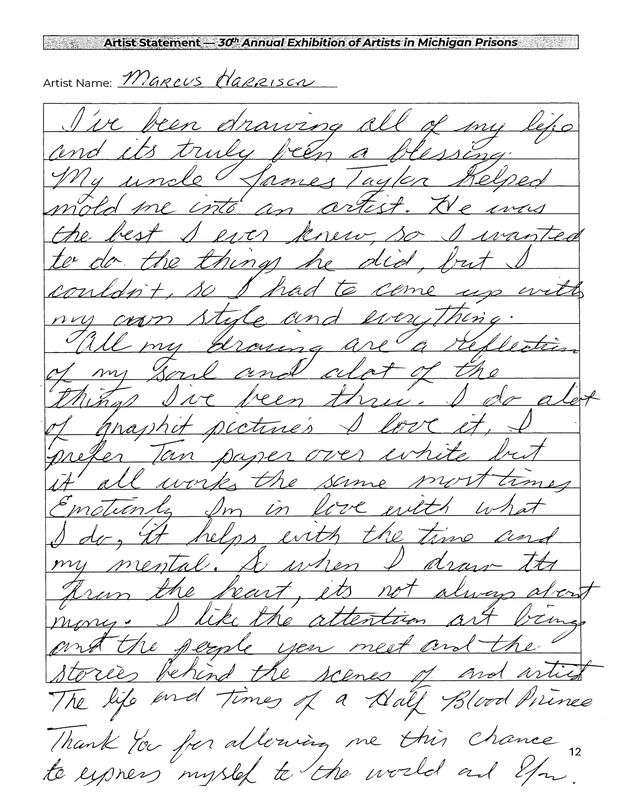 Artist Statement — 30th Annual Exhibition of Artists in Michigan Prisons
Artist Name: Marcus Harrison
I've been drawing all of my life
and its truly been a blessing.
My uncle James Taylor helped
mold me into an artist. He was
the best I ever knew, so I wanted
to do the things he did, but I
couldn't, so I had to come up with
my own style and everything.
All my drawing are a reflection
of my soul and alot of the
things I've been thru. I do alot
of graphit pictures I love it, I
prefer Tan paper over white but
it all works the same most times
Emotionly Im in love with what
I do, it helps with the time and
my mental. So when I draw its
from the heart, its not always about
mony. I like the attention art brings
and the people you meet and the
stories behind the scenes of and artist
The life and Times of a Half Blood Prince
Thank You for allowing me this chance
to express myslef to the world and
12